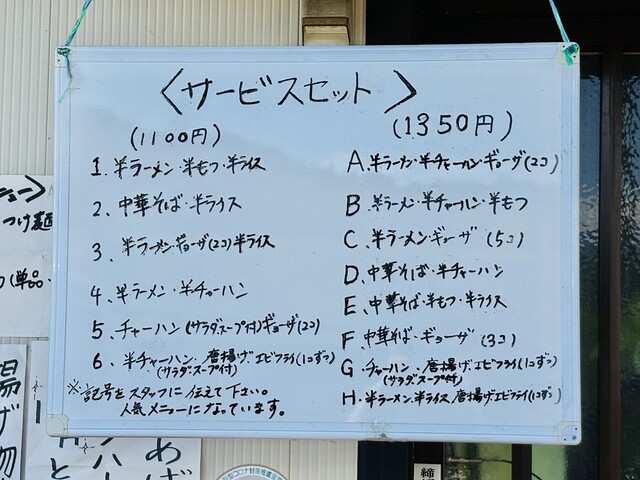 〈サービスセット〉
(1100円)
1、半ラーメン・半もつ・半ライス
2、中華そば・半ライス
3、半ラーメン・ギョーザ(2コ)半ライス
4、半ラーメン・半チャーハン
5、チャーハン(サラダスープ付)ギョーザ(2コ)
6、半チャーハン・唐揚げ、エビフライ(1コずつ)
(サラダスープ付)
※記号をスタッフに伝えて下さい。
人気メニューになっています。
(1350円)
A、半ラーメン・半チャーハン・ギョーザ(2コ)
B、半ラーメン・半チャーハン・半もつ
C、半ラーメン・ギョーザ(5コ)
D、中華そば・半チャーハン
E、中華そば・半もつ・半ライス
F、中華そば・ギョーザ(3コ)
G、チャーハン・唐揚げ、エビフライ(1コずつ)
(サラダスープ付)
H、半ラーメン、半ライス、唐揚げ、エビフライ(1コずつ)
ュー〉
つけ麺
(単品・
揚げ物
あげ